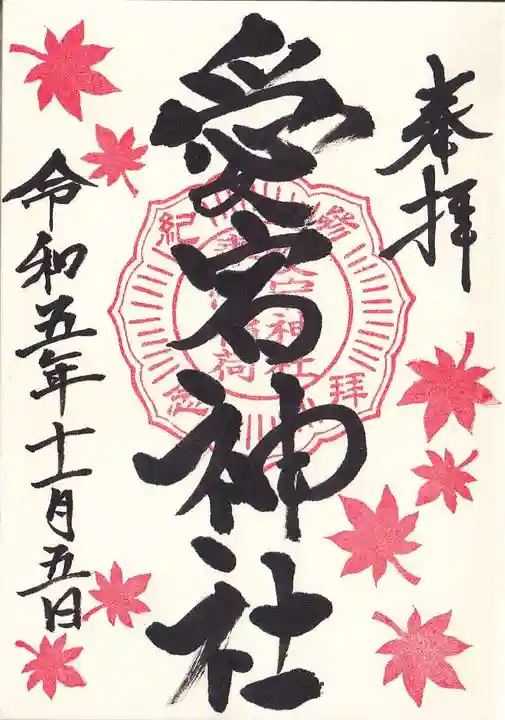 奉拝
愛宕神社
参拝
紀念
神社
荷
令和五年十一月五日